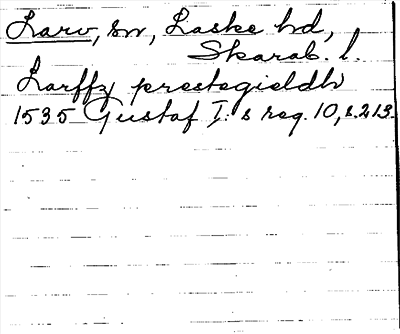 Larv, sn, Laske hd,
Skarab. l.
Larffz prestegieldh
1535 Gustaf I:s reg. 10, s. 213.